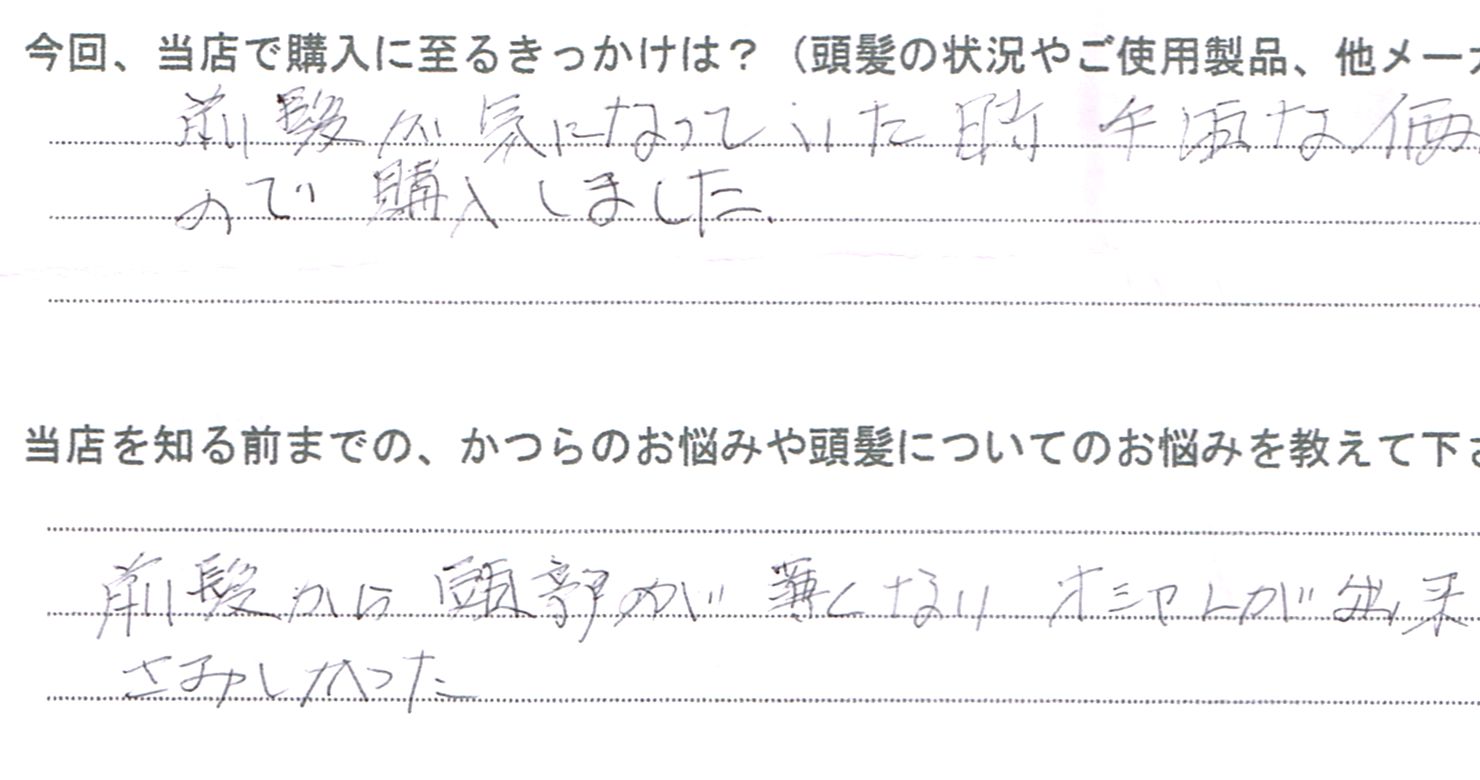 今回、当店で購入に至るきっかけは？（頭髪の状況やご使用製品、他メーカ
前髪が気になっていた時 手頃な価
ので 購入しました.
当店を知る前までの、かつらのお悩みや頭髪についてのお悩みを教えて下さ
前髪から 頭部のが 薄くなり オシャレが出来
さみしかった